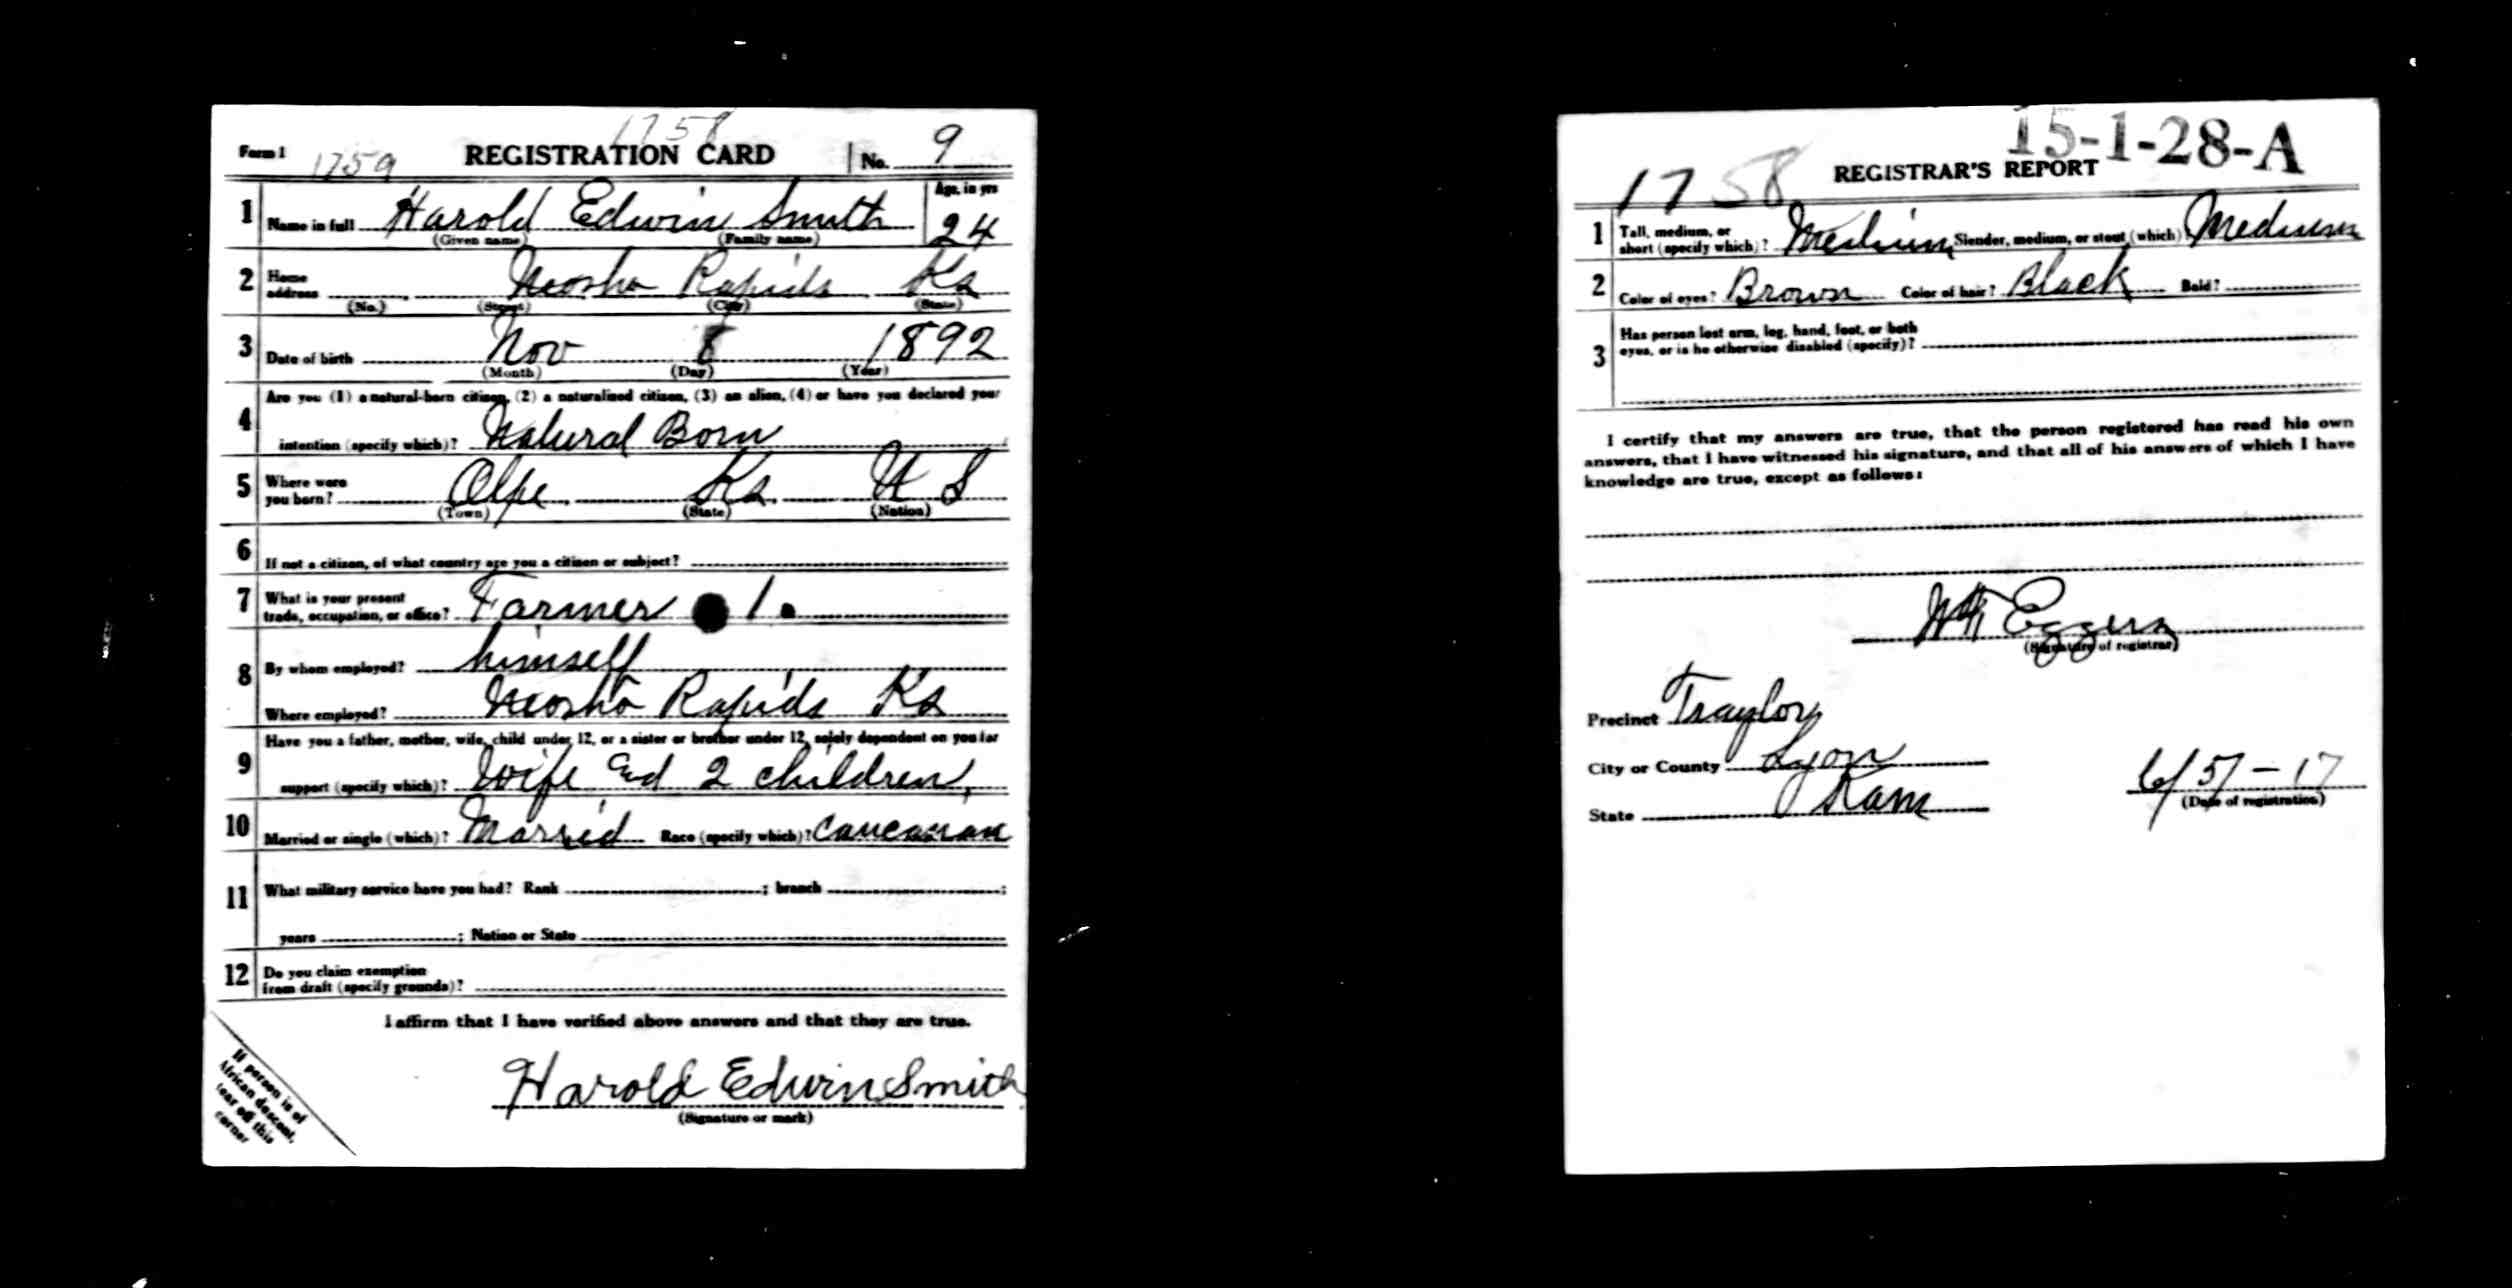 1758
Form 1 1759 REGISTRATION CARD No. 9
1 Name in full Harold Edwin Smith Age, in yrs 24
(Given name) (Family name)
2 Home address Neosho Rapids Ks
(No.) (Street) (City) (State)
3 Date of birth Nov 8 1892
(Month) (Day) (Year)
4 Are you (1) a natural-born citizen, (2) a naturalized citizen, (3) an alien, (4) or have you declared your
intention (specify which)? Natural Born
5 Where were you born? Olpe, Ks. U S
(Town) (State) (Nation)
6 If not a citizen, of what country are you a citizen or subject?
7 What is your present trade, occupation, or office? Farmer 1.
8 By whom employed? himself
Where employed? Neosho Rapids Ks
9 Have you a father, mother, wife, child under 12, or a sister or brother under 12, solely dependent on you for
support (specify which)? Wife and 2 children,
10 Married or single (which)? Married Race (specify which)? Caucasian
11 What military service have you had? Rank ; branch ;
years ; Nation or State
12 Do you claim exemption
from draft (specify grounds)?
I affirm that I have verified above answers and that they are true.
Harold Edwin Smith
(Signature or mark)
If person is of
African descent,
tear off this
corner
15-1-28-A
1758 REGISTRAR'S REPORT
1 Tall, medium, or short (specify which)? Medium Slender, medium, or stout (which)? Medium
2 Color of eyes? Brown Color of hair? Black Bald?
3 Has person lost arm, leg, hand, foot, or both
eyes, or is he otherwise disabled (specify)?
I certify that my answers are true, that the person registered has read his own
answers, that I have witnessed his signature, and that all of his answers of which I have
knowledge are true, except as follows:
Eggers
(Signature of registrar)
Precinct Traylor
City or County Lyon
State Kans
6/5/-17
(Date of registration)